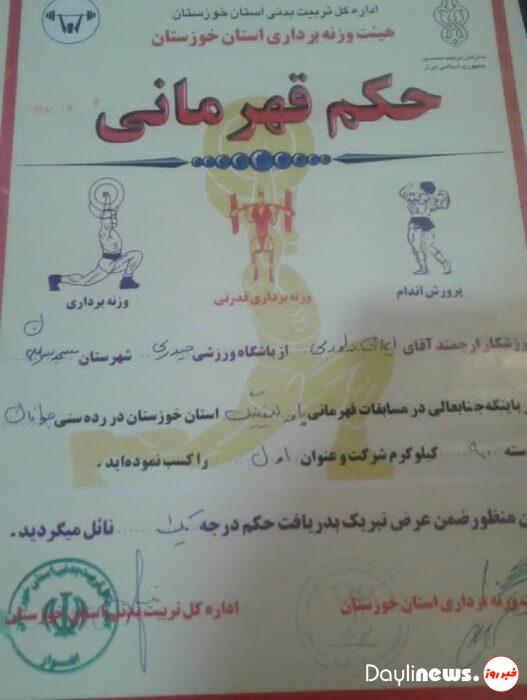 اداره کل تربیت بدنی استان خوزستان
هیئت وزنه برداری استان خوزستان
سازمان تربیت بدنی
جمهوری اسلامی ایران
حکم قهرمانی
پرورش اندام
وزنه برداری قدرتی
وزنه برداری
ورزشکار ارجمند آقای ایمان داوری از باشگاه ورزشی حیدری شهرستان مسجدسلیمان
باینکه جنابعالی در مسابقات قهرمانی پاورلیفتینگ استان خوزستان در رده سنی جوانان
دسته ۹۰ کیلوگرم شرکت و عنوان اول را کسب نموده‌اید .
منظور ضمن عرض تبریک بدریافت حکم درجه یک نائل میگردید .
وزنه برداری استان خوزستان
اداره کل تربیت بدنی استان خوزستان
اهواز
Daylinews. خبر روز